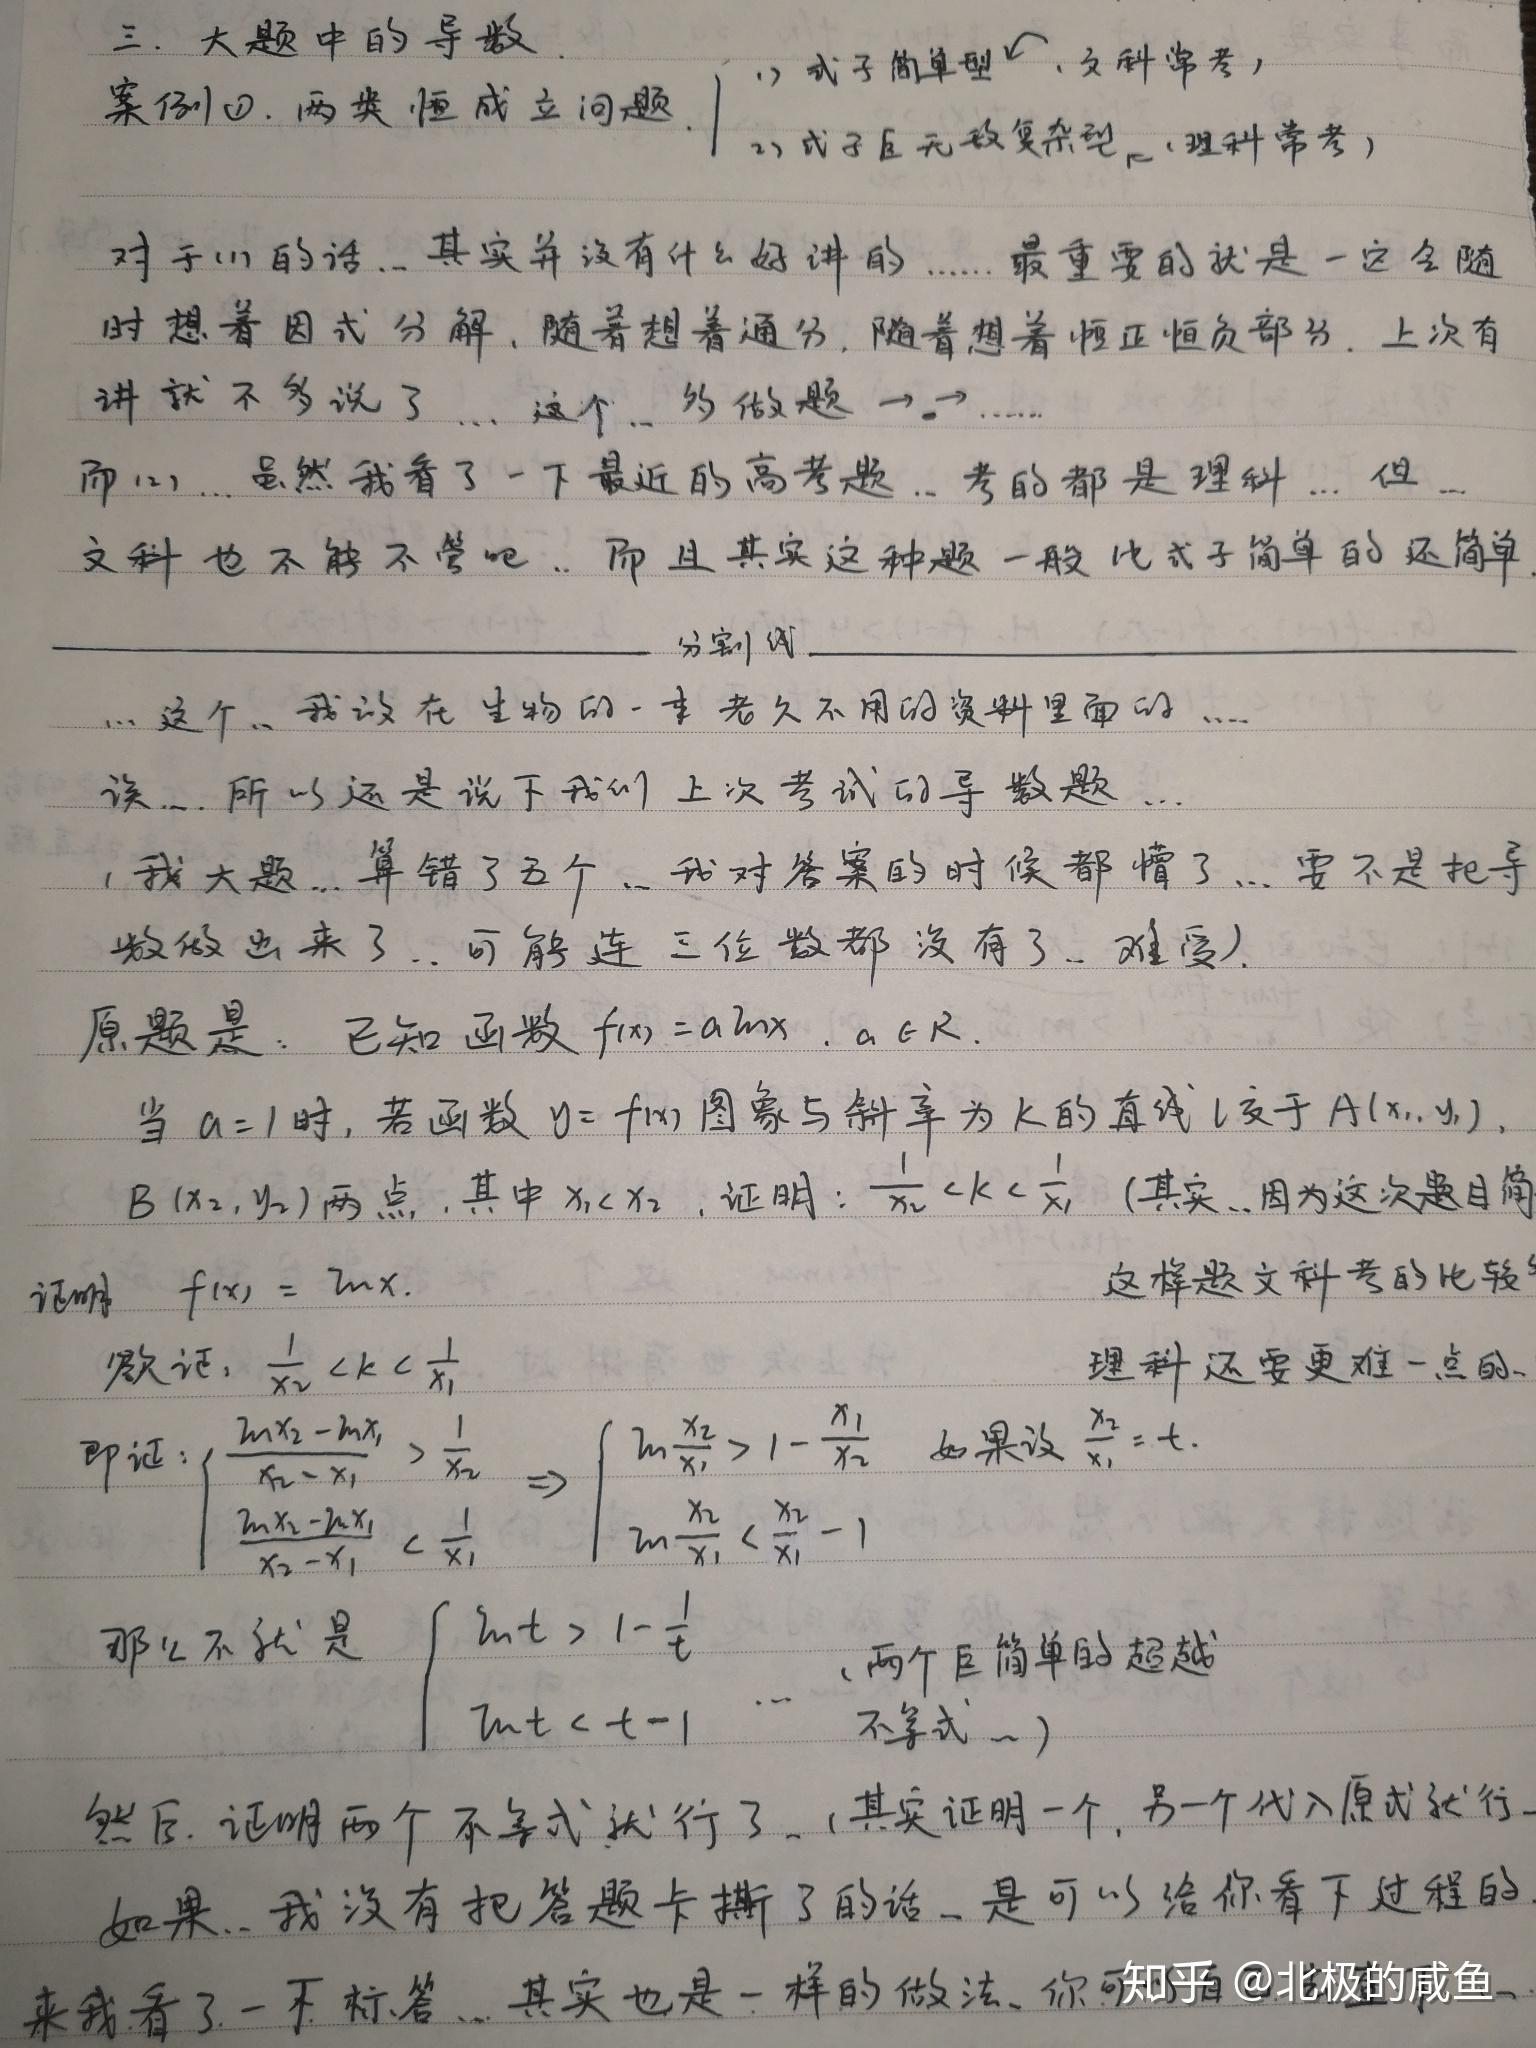 三. 大题中的导数.
案例①. 两类恒成立问题.
(1) 式子简单型 (文科常考)
(2) 式子巨无敌复杂型 (理科常考)
对于(1)的话… 其实并没有什么好讲的…… 最重要的就是一定会随
时想着因式分解, 随着想着通分, 随着想着恒正恒负部分. 上次有
讲就不多说了… 这个… 多做题 →.→……
而(2)… 虽然我看了一下最近的高考题… 考的都是理科… 但…
文科也不能不管吧… 而且其实这种题一般比式子简单的还简单.
分割线
… 这个… 我放在生物的一本老久不用的资料里面的……
诶…. 所以还是说下我们上次考试的导数题…
(我大题… 算错了五个… 我对答案的时候都懵了… 要不是把导
数做出来了… 可能连三位数都没有了… 难受).
原题是: 已知函数 f(x) = alnx. a∈R.
当 a=1时, 若函数 y= f(x) 图象与斜率为 k 的直线 l 交于 A(x₁, y₁),
B (x₂, y₂) 两点, 其中 x₁<x₂, 证明: 1/x₂ < k < 1/x₁ (其实… 因为这次题目简
这样题文科考的比较
理科还要更难一点的…
证明 f(x) = lnx.
欲证: 1/x₂ < k < 1/x₁
即证: { (lnx₂-lnx₁)/(x₂-x₁) > 1/x₂ ⇒ { ln x₂/x₁ > 1 - x₁/x₂ 如果设 x₂/x₁ = t.
(lnx₂-lnx₁)/(x₂-x₁) < 1/x₁ ln x₂/x₁ < x₂/x₁ - 1
那么不就是 { lnt > 1 - 1/t
lnt < t-1 … (两个巨简单的超越
不等式…)
然后. 证明两个不等式就行了… (其实证明一个, 另一个代入原式就行…
如果… 我没有把答题卡撕了的话… 是可以给你看下过程的.
来我看了一下标答… 其实也是一样的做法、你可以自己
知乎 @北极的咸鱼